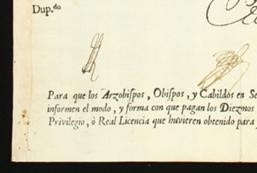 Dup.do
Para que los Arzobispos, Obispos, y Cabildos en Se
informen el modo, y forma con que pagan los Diezmos
Privilegio, ò Real Licencia que huvieren obtenido para